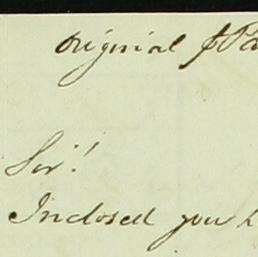 Original
Sir!
Inclosed you h